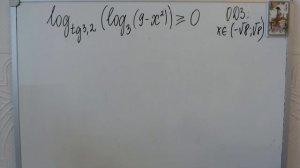 log_{tg 3,2} (log_3 (9-x²)) ≥ 0
ОДЗ:
x∈(-√8; √8)